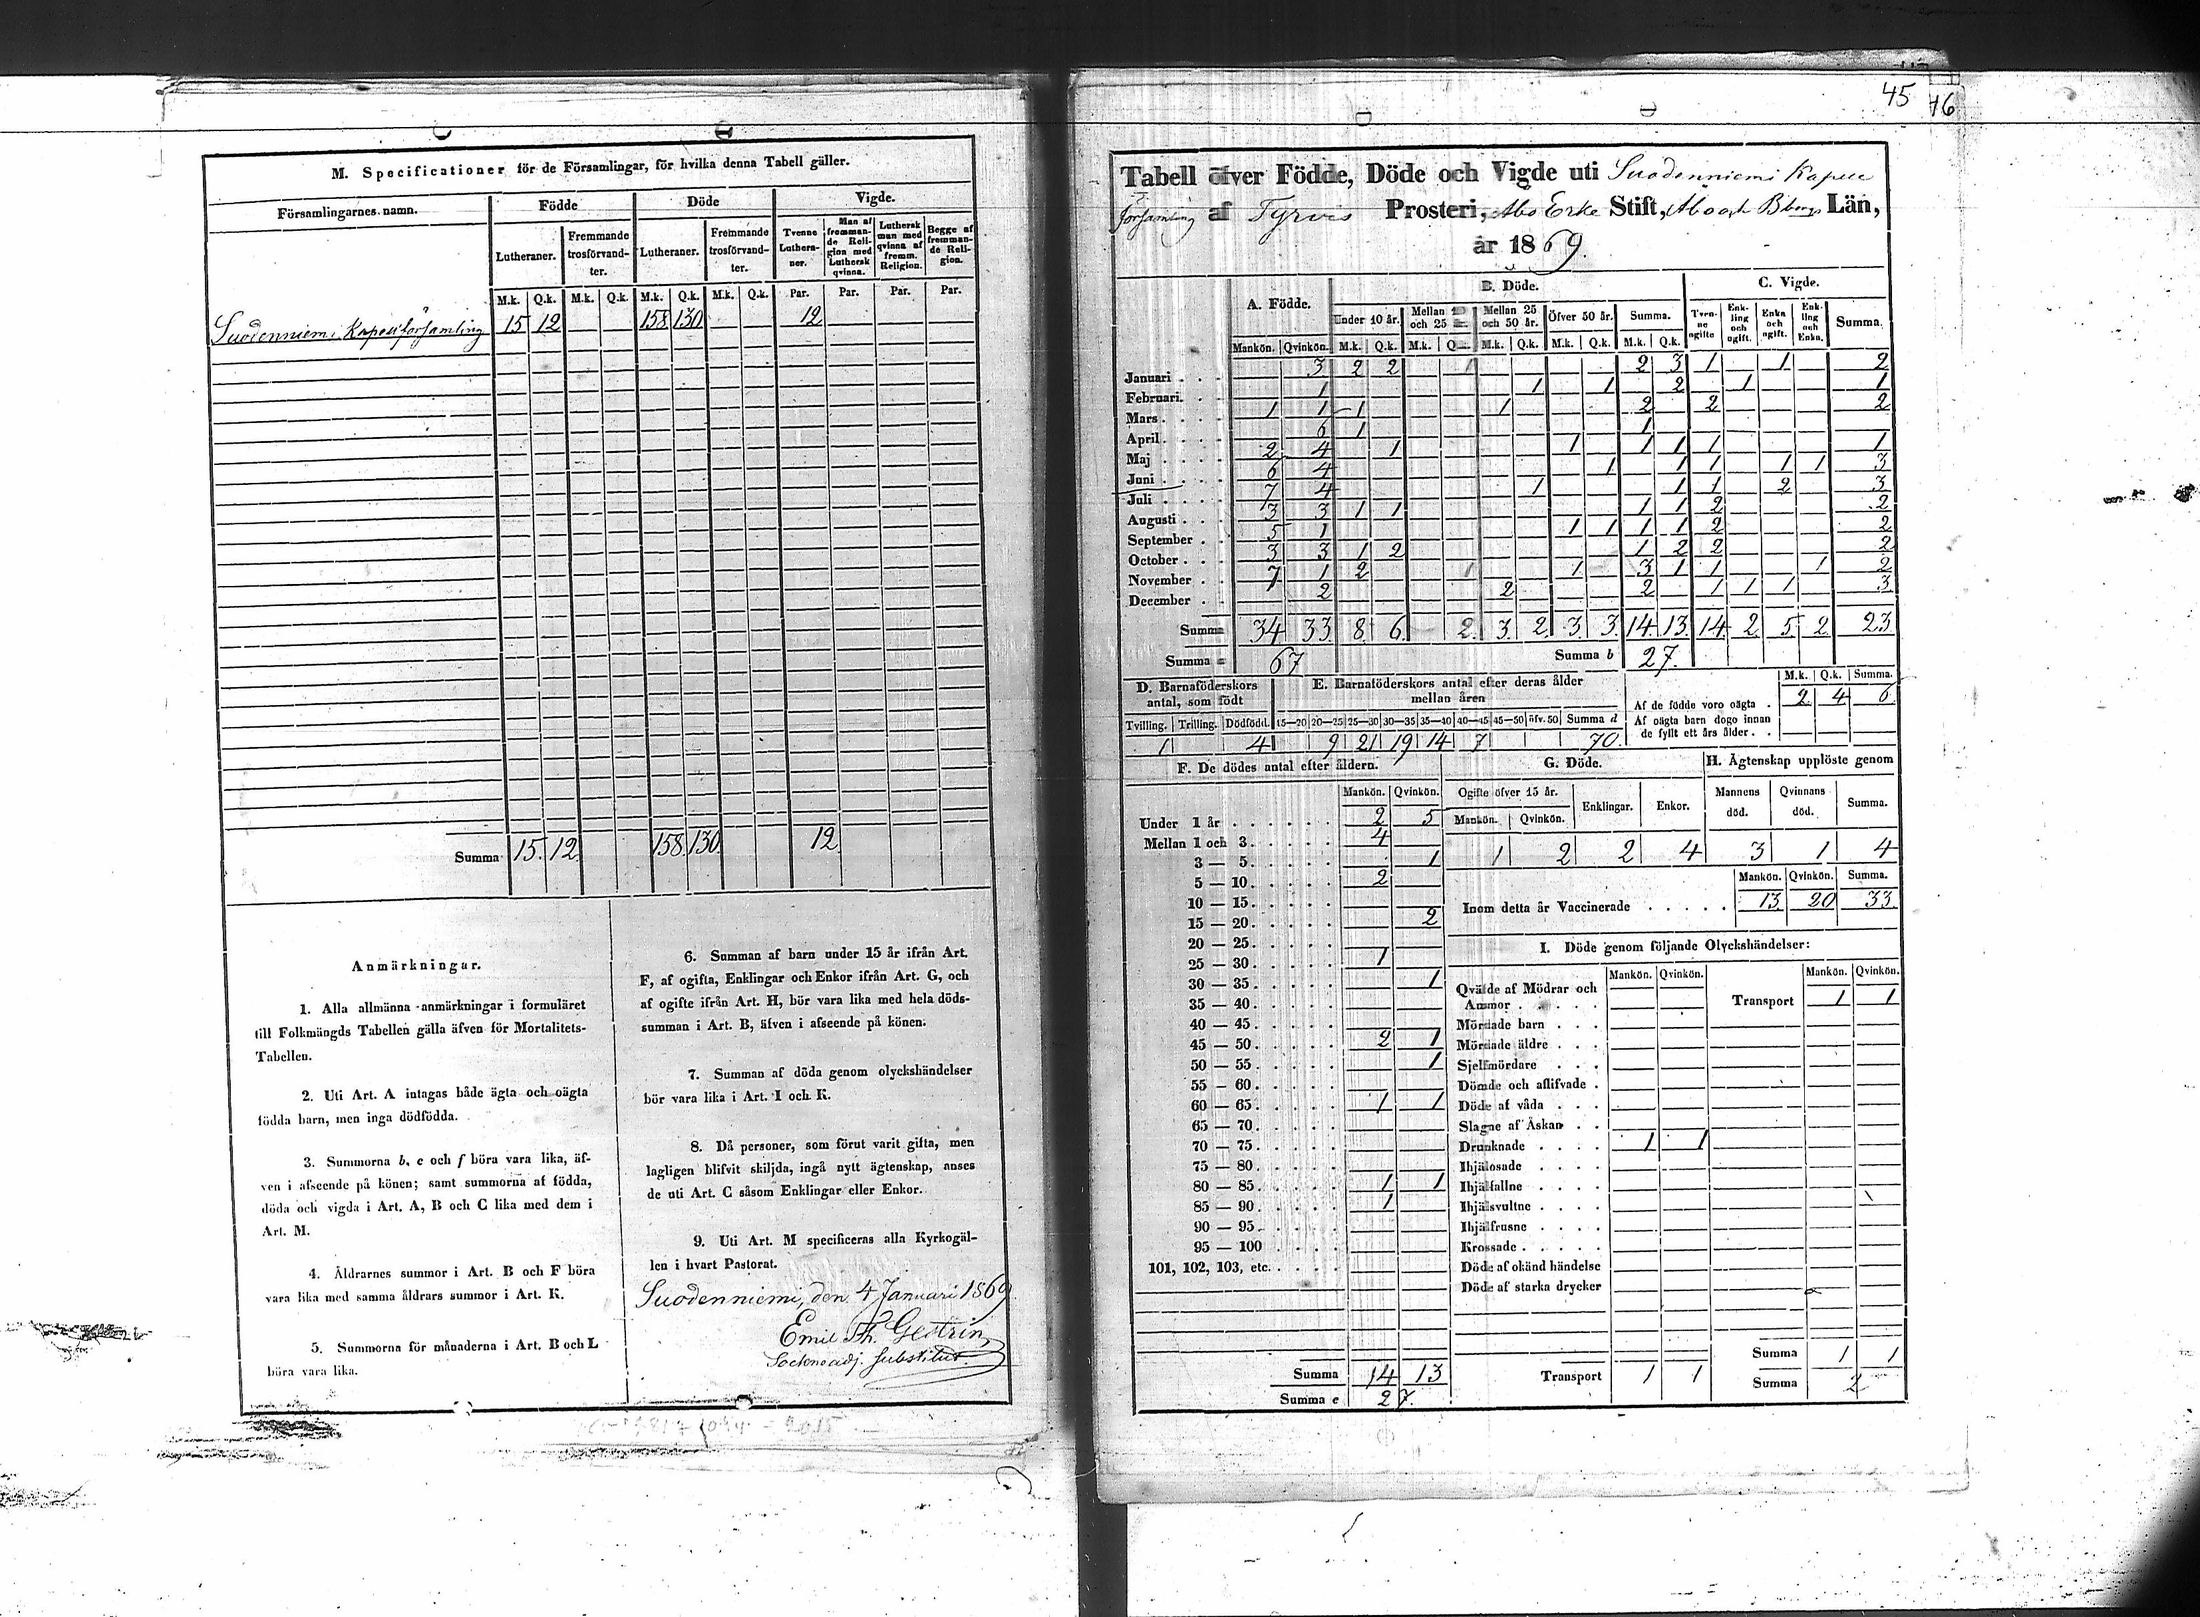 M. Specificationer för de Församlingar, för hvilka denna Tabell gäller.
Församlingarnes namn. Födde Döde Vigde.
Lutheraner. Fremmande trosförvandter. Lutheraner. Fremmande trosförvandter. Tvenne Lutheraner. Man af fremmande Religion med Luthersk qvinna. Luthersk man med qvinna af fremm. Religion. Begge af fremmande Religion.
M.k. Q.k. M.k. Q.k. M.k. Q.k. M.k. Q.k. Par. Par. Par. Par.
Suodenniemi Kapellförsamling 15 12 158 130 12
Summa 15. 12. 158. 130. 12.
Anmärkningar.
1. Alla allmänna anmärkningar i formuläret
till Folkmängds Tabellen gälla äfven för Mortalitets-
Tabellen.
2. Uti Art. A intagas både ägta och oägta
födda barn, men inga dödfödda.
3. Summorna b, e och f böra vara lika, äf-
ven i afseende på könen; samt summorna af födda,
döda och vigda i Art. A, B och C lika med dem i
Art. M.
4. Åldrarnes summor i Art. B och F böra
vara lika med samma åldrars summor i Art. K.
5. Summorna för månaderna i Art. B och L
böra vara lika.
6. Summan af barn under 15 år ifrån Art.
F, af ogifta, Enklingar och Enkor ifrån Art. G, och
af ogifte ifrån Art. H, bör vara lika med hela döds-
summan i Art. B, äfven i afseende på könen.
7. Summan af döda genom olyckshändelser
bör vara lika i Art. I och K.
8. Då personer, som förut varit gifta, men
lagligen blifvit skiljda, ingå nytt ägtenskap, anses
de uti Art. C såsom Enklingar eller Enkor.
9. Uti Art. M specificeras alla Kyrkogäl-
len i hvart Pastorat.
Suodenniemi, den 4 Januari 1869
Emil Th. Gestrin
Sockneadj. Substitut.
45 46
Tabell öfver Födde, Döde och Vigde uti Suodenniemi Kapell
församling af Tyrvis Prosteri, Åbo Erke Stift, Åbo och B:borgs Län,
år 1869.
A. Födde. B. Döde. C. Vigde.
Under 10 år. Mellan 10 och 25 år. Mellan 25 och 50 år. Öfver 50 år. Summa. Tvenne ogifte Enkling och ogift. Enka och ogift. Enkling och Enka. Summa.
Mankön. Qvinkön. M.k. Q.k. M.k. Q.k. M.k. Q.k. M.k. Q.k. M.k. Q.k.
Januari 3 2 2 1 2 3 1 1 2
Februari 1 1 1 2 1 1
Mars 1 1 1 1 2 2 2
April 6 1 1
Maj 2 4 1 1 1 1 1 1
Juni 6 4 1 1 1 1 1 3
Juli 7 4 1 1 1 2 3
Augusti 3 3 1 1 1 1 2 2
September 5 1 1 1 1 1 2 2
October 3 3 1 2 1 2 2 2
November 7 1 2 1 1 3 1 1 1 2
December 2 2 2 1 1 1 3
Summa 34 33 8. 6. 2. 3. 2. 3. 3. 14. 13. 14. 2 5. 2. 23
Summa a 67 Summa b 27.
D. Barnaföderskors antal, som födt
E. Barnaföderskors antal efter deras ålder mellan åren
M.k. Q.k. Summa.
Af de födde voro oägta 2 4 6
Af oägta barn dogo innan de fyllt ett års ålder
Tvilling. Trilling. Dödfödd. 15—20 20—25 25—30 30—35 35—40 40—45 45—50 öfv. 50 Summa d
1 4 9 21 19 14 7 70.
F. De dödes antal efter åldern.
Mankön. Qvinkön.
Under 1 år 2 5
Mellan 1 och 3 4
3 — 5 1
5 — 10 2
10 — 15
15 — 20 2
20 — 25
25 — 30 1
30 — 35 1
35 — 40
40 — 45
45 — 50 2 1
50 — 55 1
55 — 60
60 — 65 1 1
65 — 70
70 — 75
75 — 80
80 — 85 1 1
85 — 90 1
90 — 95
95 — 100
101, 102, 103, etc.
Summa 14 13
Summa e 27.
G. Döde.
Ogifte öfver 15 år. Enklingar. Enkor.
Mankön. Qvinkön.
1 2 2 4
H. Ägtenskap upplöste genom
Mannens död. Qvinnans död. Summa.
3 1 4
Mankön. Qvinkön. Summa.
Inom detta år Vaccinerade 13 20 33
I. Döde genom följande Olyckshändelser:
Mankön. Qvinkön. Mankön. Qvinkön.
Qväfde af Mödrar och Ammor
Mördade barn
Mördade äldre
Sjelfmördare
Dömde och aflifvade
Döde af våda
Slagne af Åskan
Drunknade 1 1
Ihjälosade
Ihjälfallne
Ihjälsvultne
Ihjälfrusne
Krossade
Döde af okänd händelse
Döde af starka drycker
Transport 1 1
Transport 1 1
Summa 1 1
Summa 2